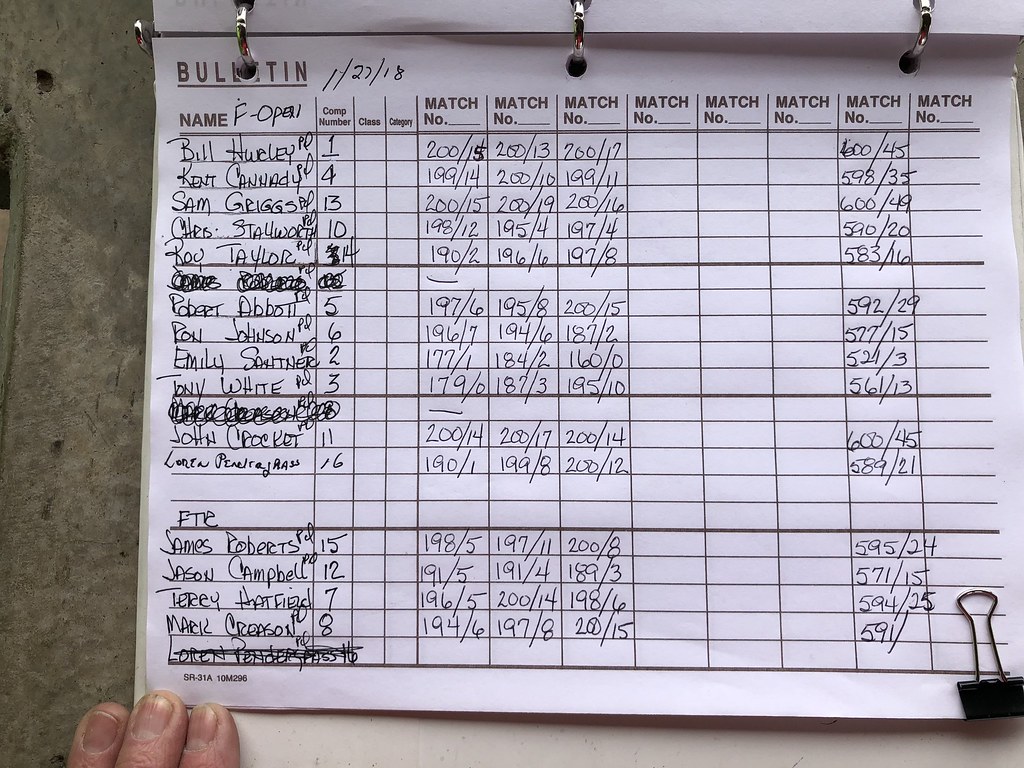 BULLETIN 1/27/18
NAME F-OPEN Comp Number Class Category MATCH No.____ MATCH No.____ MATCH No.____ MATCH No.____ MATCH No.____ MATCH No.____ MATCH No.____ MATCH No.____
Bill Hurley pd 1 200/15 200/13 200/17 600/45
KENT CANNADY pd 4 199/14 200/10 199/11 598/35
SAM GRIGGS pd 13 200/15 200/19 200/16 600/49
CHRIS STALLWORTH pd 10 198/12 195/4 197/4 590/20
ROY TAYLOR pd 14 190/2 196/6 197/8 583/16
pd —
ROBERT ABBOTT pd 5 197/6 195/8 200/15 592/29
RON JOHNSON pd 6 196/7 194/6 187/2 577/15
EMILY SANTNER pd 2 177/1 184/2 160/0 521/3
TONY WHITE pd 3 179/0 187/3 195/10 561/13
pd —
JOHN CROCKET pd 11 200/14 200/17 200/14 600/45
LOREN PENDERGRASS 16 190/1 199/8 200/12 589/21
FTR
JAMES ROBERTS pd 15 198/5 197/11 200/8 595/24
JASON Campbell pd 12 191/5 191/4 189/3 571/15
TERRY HATFIELD 7 196/5 200/14 198/6 594/25
MARK CREASON pd 8 194/6 197/8 200/15 591/
LOREN PENDERGRASS pd 16
SR-31A 10M296